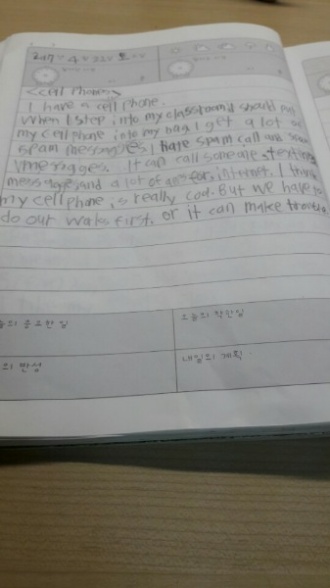 2017 년 4 월 22 일 토
<Cell Phone>
I have a cell phone.
When I step into my classroom I should put
my cell phone into my bag I get a lot of
spam messages. I hate spam call and spam
It can call someone, texting
messages and a lot of for internet. I think
my cell phone is really cool. But we have to
do our works first. or it can make trouble
늘의 중요한 일
오늘의 착한일
의 반성
내일의 계획